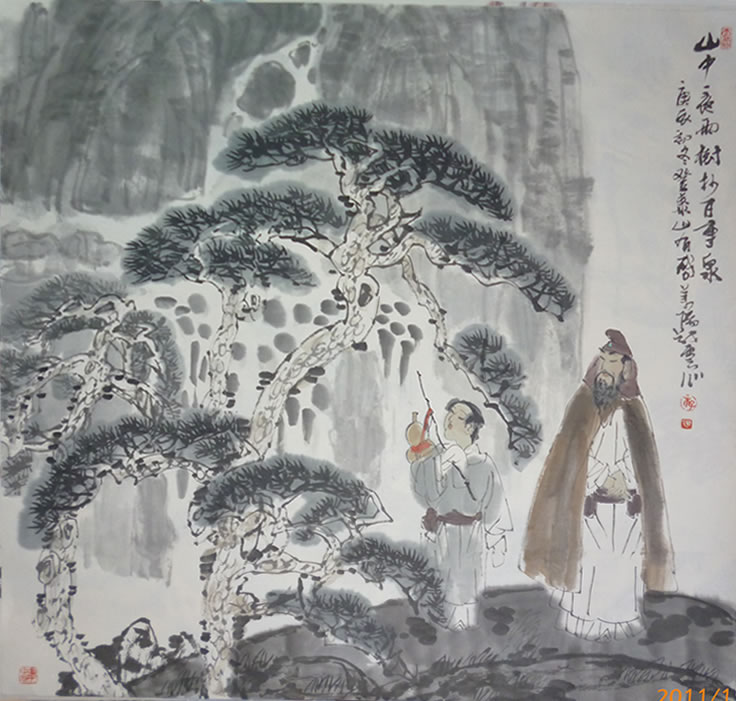 山中夜雨樹杪百重泉
庚辰初冬登泰山有感
2011/1